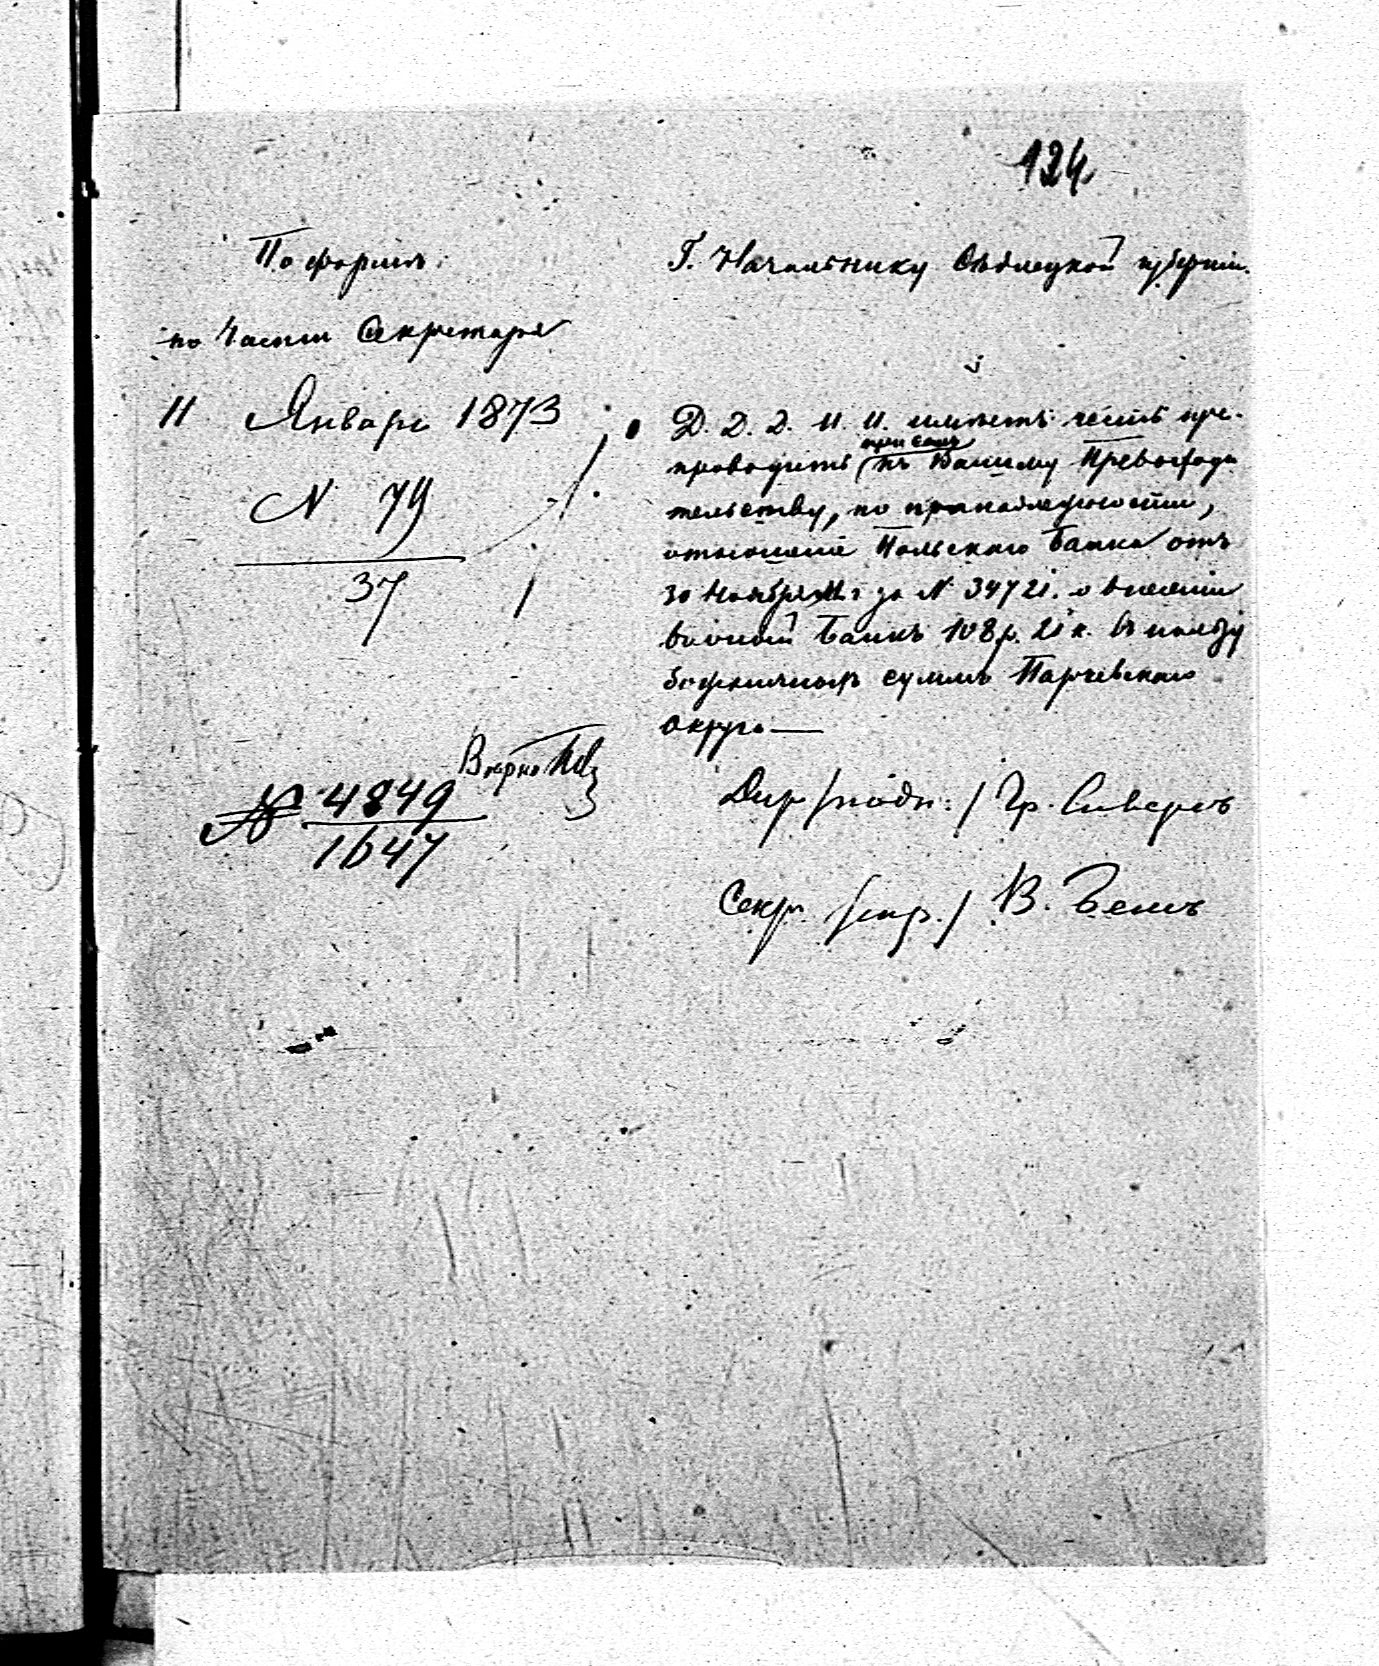 124
По формѣ
по Части Секретаря
11 Января 1873
N 79
37
Г. Начальнику Сѣдлецкой губерніи.
Д. Д. Д. И. И. имѣетъ честь пре-
при семъ
проводить къ Вашему Превосходи
тельству, по принадлежности,
отношеніе Польскаго Банка отъ
30 Ноября за N 34721. о внесеніи
въ оный Банкъ 108 р. 21 к. въ пользу
суммъ Парчевскаго
округа —
Вѣрно
№ 4849
1647
Дир /подп: / Гр. Сиверсъ
Секр. /подп. / В. Бемъ